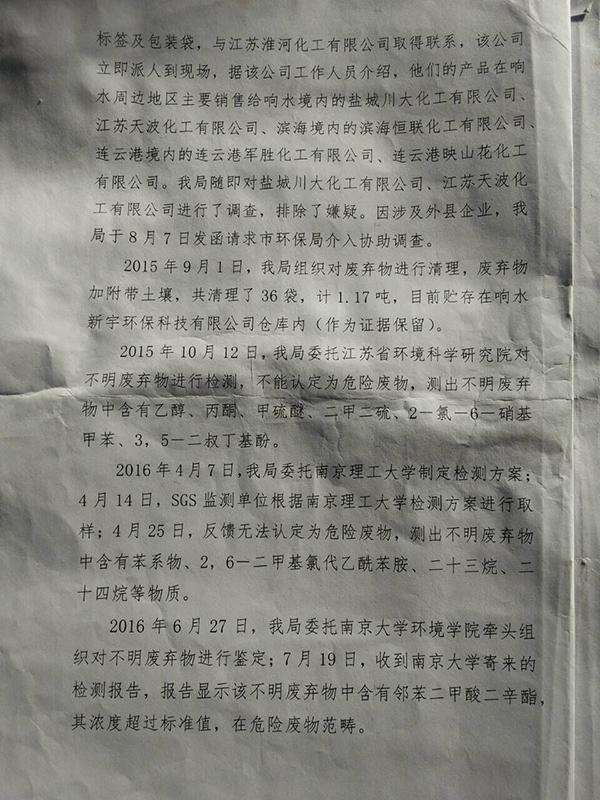 标签及包装袋，与江苏淮河化工有限公司取得联系，该公司
立即派人到现场，据该公司工作人员介绍，他们的产品在响
水周边地区主要销售给响水境内的盐城川大化工有限公司、
江苏天波化工有限公司、滨海境内的滨海恒联化工有限公司、
连云港境内的连云港军胜化工有限公司、连云港映山花化工
有限公司。我局随即对盐城川大化工有限公司、江苏天波化
工有限公司进行了调查，排除了嫌疑。因涉及外县企业，我
局于8月7日发函请求市环保局介入协助调查。
2015年9月1日，我局组织对废弃物进行清理，废弃物
加附带土壤，共清理了36袋，计1.17吨，目前贮存在响水
新宇环保科技有限公司仓库内（作为证据保留）。
2015年10月12日，我局委托江苏省环境科学研究院对
不明废弃物进行检测，不能认定为危险废物，测出不明废弃
物中含有乙醇、丙酮、甲硫醚、二甲二硫、2－氯－6－硝基
甲苯、3，5－二叔丁基酚。
2016年4月7日，我局委托南京理工大学制定检测方案；
4月14日，SGS监测单位根据南京理工大学检测方案进行取
样；4月25日，反馈无法认定为危险废物，测出不明废弃物
中含有苯系物、2，6－二甲基氯代乙酰苯胺、二十三烷、二
十四烷等物质。
2016年6月27日，我局委托南京大学环境学院牵头组
织对不明废弃物进行鉴定；7月19日，收到南京大学寄来的
检测报告，报告显示该不明废弃物中含有邻苯二甲酸二辛酯，
其浓度超过标准值，在危险废物范畴。